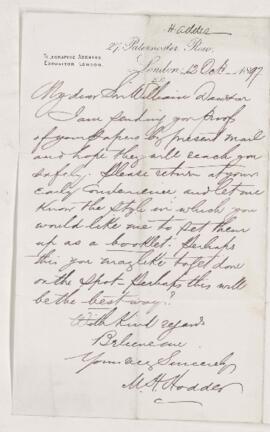 Hodder
27, Paternoster Row,
TELEGRAPHIC ADDRESS
EXPOSITOR LONDON.
London, 12 Oct. 1897
My dear Sir William Dawson
I am sending you proof
of your papers by present mail
and hope they will reach you
safely. Please return at your
early convenience and let me
know the style in which you
would like me to get them
up as a booklet. Perhaps
this you may like to get done
on the spot - Perhaps this will
be the best way?
With kind regards
Believe me
Yours very Sincerely
M. H. Hodder